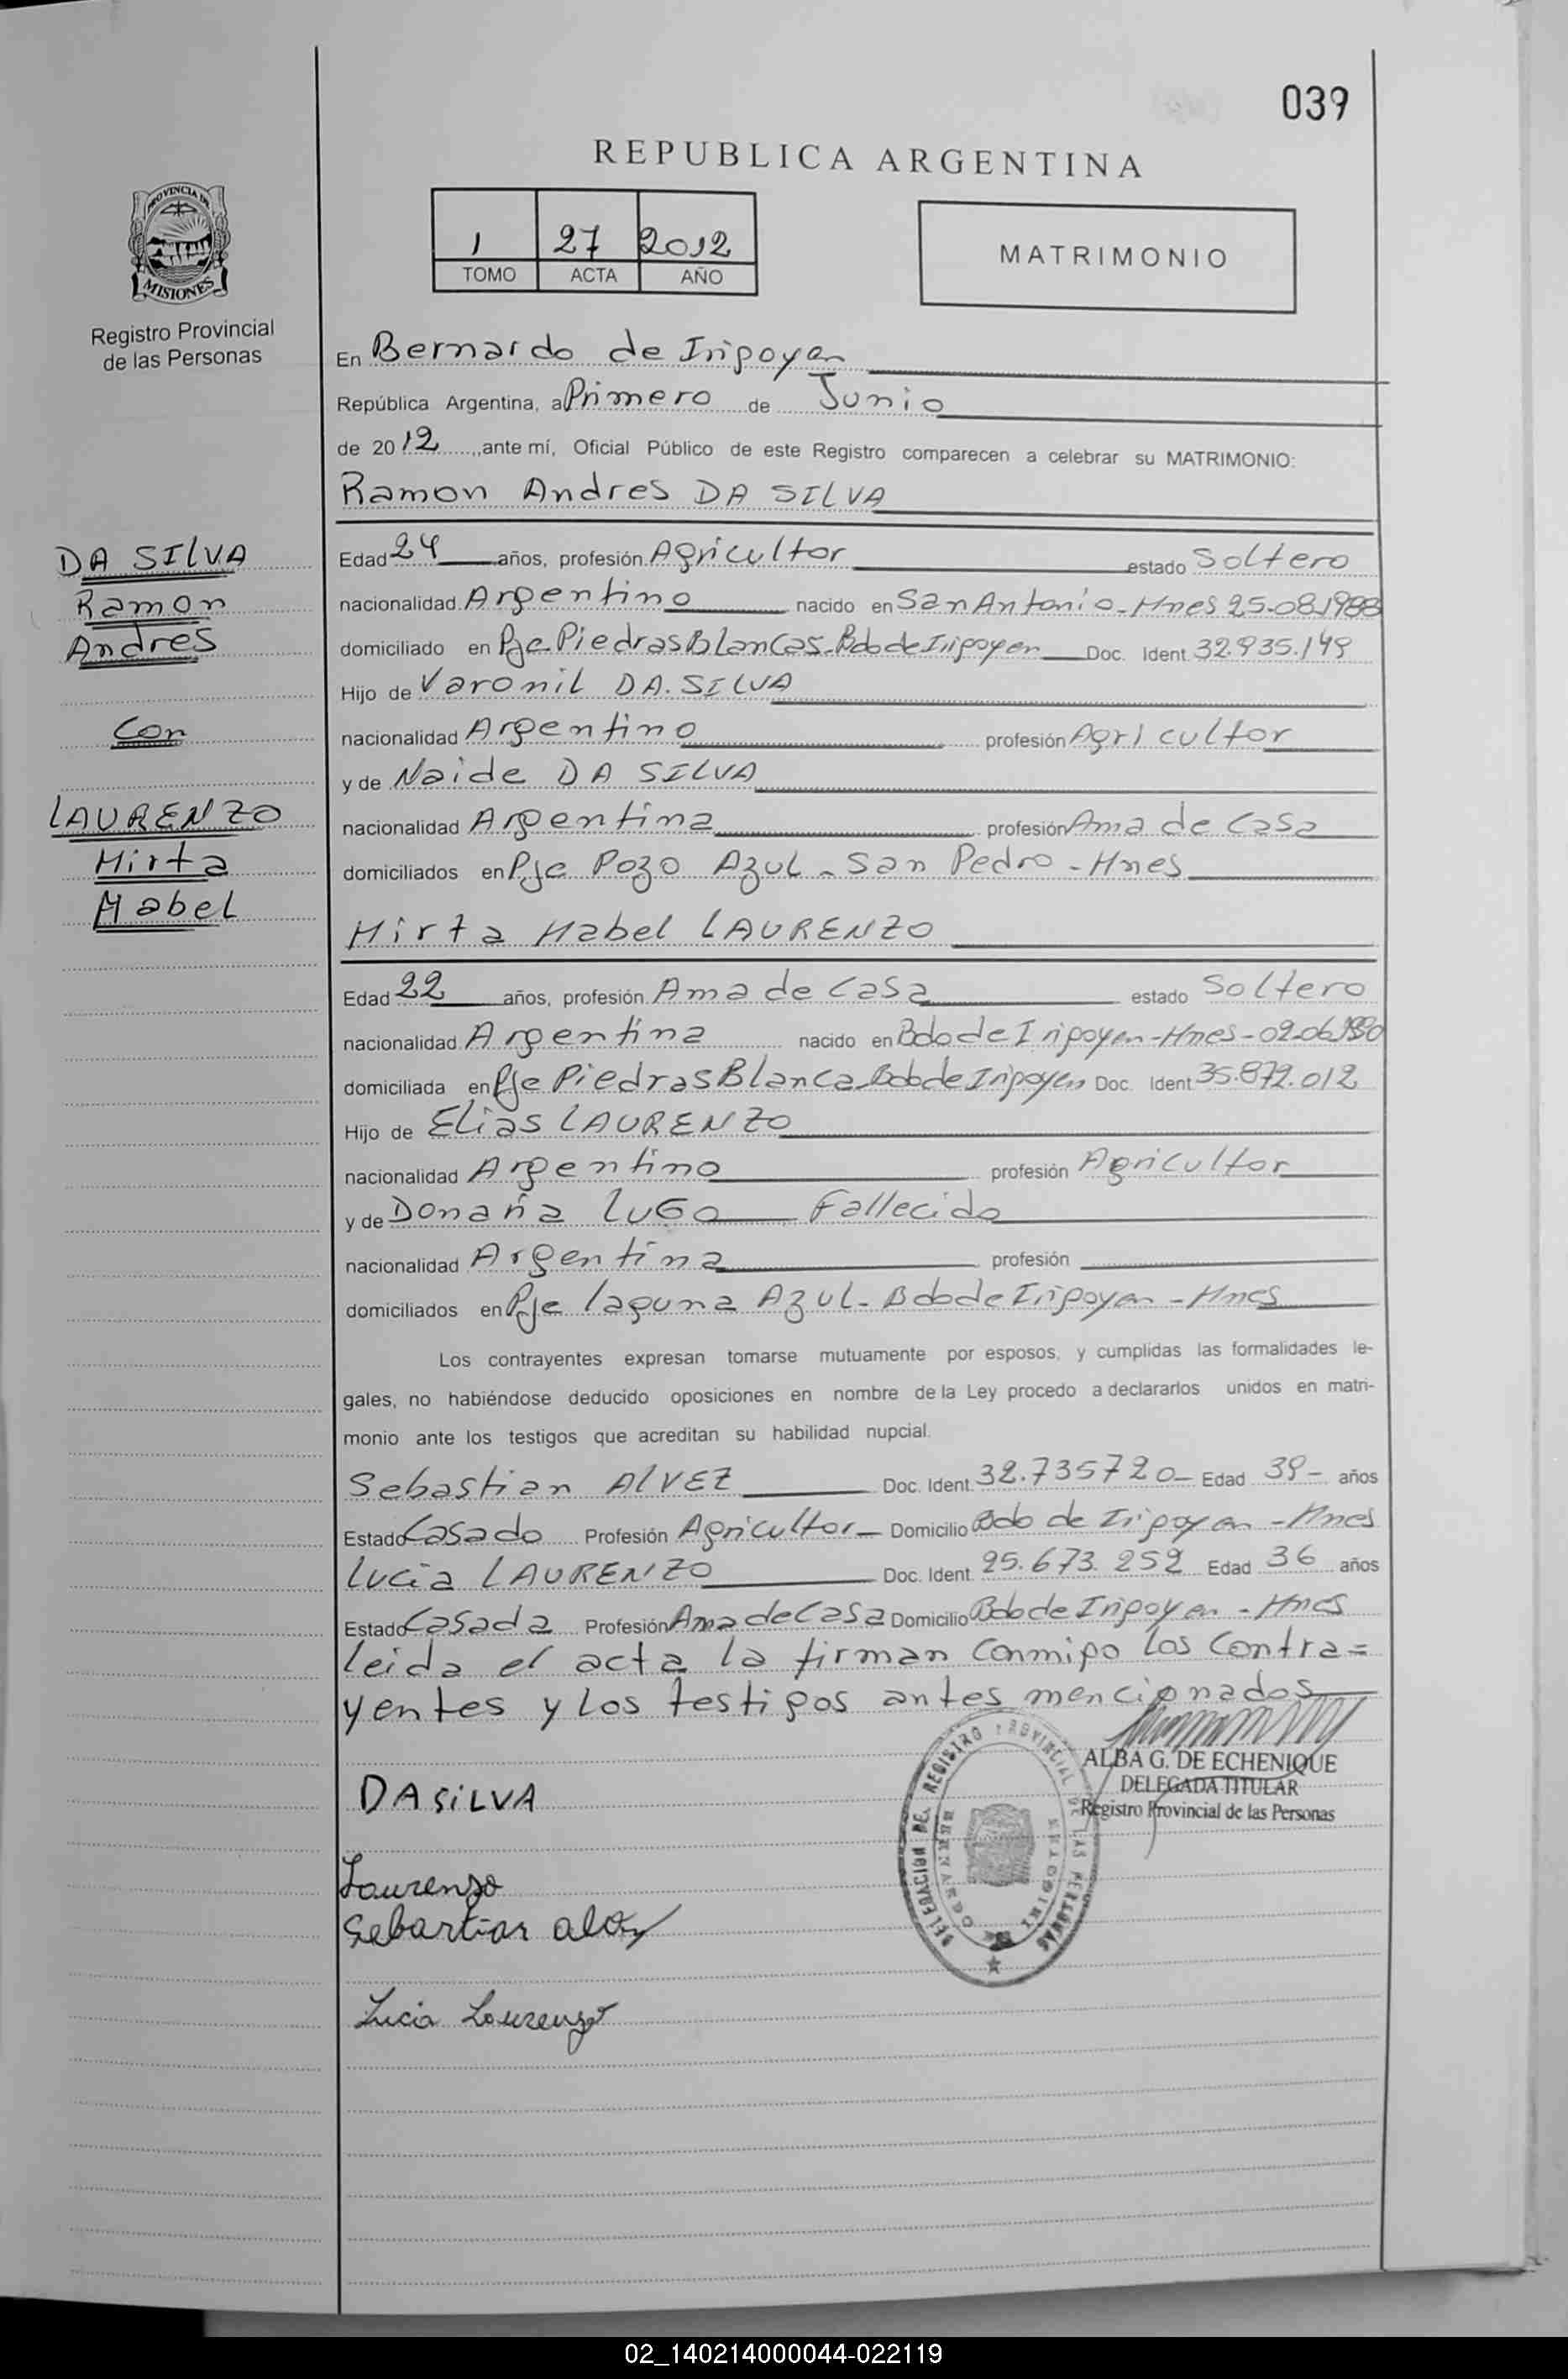 039
REPUBLICA ARGENTINA
PROVINCIA DE
MISIONES
Registro Provincial
de las Personas
1 27 2012
TOMO ACTA AÑO
MATRIMONIO
En Bernardo de Irigoyen
República Argentina, a Primero de Junio
de 2012, ante mí, Oficial Público de este Registro comparecen a celebrar su MATRIMONIO:
Ramon Andres DA SILVA
DA SILVA
Ramon
Andres
Con
LAURENZO
Mirta
Mabel
Edad 24 años, profesión Agricultor estado Soltero
nacionalidad Argentino nacido en San Antonio - Mnes 25-08-1988
domiciliado en Pje Piedras Blancas - Bdo de Irigoyen Doc. Ident. 32.935.149
Hijo de Varonil DA SILVA
nacionalidad Argentino profesión Agricultor
y de Naide DA SILVA
nacionalidad Argentina profesión Ama de Casa
domiciliados en Pje Pozo Azul - San Pedro - Mnes
Mirta Mabel LAURENZO
Edad 22 años, profesión Ama de Casa estado Soltero
nacionalidad Argentina nacido en Bdo de Irigoyen - Mnes - 02-06-1990
domiciliada en Pje Piedras Blanca Bdo de Irigoyen Doc. Ident. 35.872.012
Hijo de Elias LAURENZO
nacionalidad Argentino profesión Agricultor
y de Donaña LUGO Fallecida
nacionalidad Argentina profesión
domiciliados en Pje laguna Azul - Bdo de Irigoyen - Mnes
Los contrayentes expresan tomarse mutuamente por esposos, y cumplidas las formalidades le-
gales, no habiéndose deducido oposiciones en nombre de la Ley procedo a declararlos unidos en matri-
monio ante los testigos que acreditan su habilidad nupcial.
Sebastian ALVEZ Doc. Ident. 32.735720- Edad 39- años
Estado Casado Profesión Agricultor - Domicilio Bdo de Irigoyen - Mnes
Lucia LAURENZO Doc. Ident. 25.673.252 Edad 36 años
Estado Casada Profesión Ama de Casa Domicilio Bdo de Irigoyen - Mnes
leida el acta la firman conmigo los contra=
yentes y los testigos antes mencionados
ALBA G. DE ECHENIQUE
DELEGADA TITULAR
Registro Provincial de las Personas
DELEGACION DEL REGISTRO PROVINCIAL DE LAS PERSONAS
BERNARDO DE IRIGOYEN
DASiLVA
Laurenzo
Sebastian
Lucia Laurenzo
02_140214000044-022119